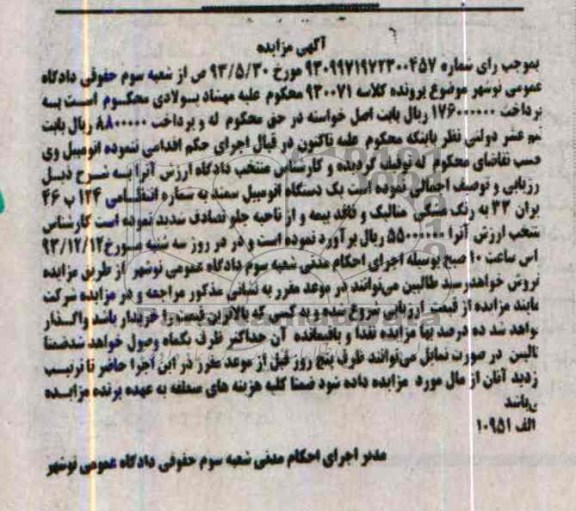 آگهی مزایده
بموجب رای شماره ۹۳۰۹۹۷۱۹۷۲۳۰۰۴۵۷ مورخ ۹۳/۵/۳۰ ص از شعبه سوم حقوقی دادگاه
عمومی نوشهر موضوع پرونده کلاسه ۹۳۰۰۷۱ محکوم علیه مهشاد بولادی محکوم است به
پرداخت ۱۷۶۰۰۰۰۰۰ ریال بابت اصل خواسته در حق محکوم له و پرداخت ۸۸۰۰۰۰۰ ریال بابت
نیم عشر دولتی نظر باینکه محکوم علیه تاکنون در قبال اجرای حکم اقدامی ننموده اتومبیل وی
حسب تقاضای محکوم له توقیف گردیده و کارشناس منتخب دادگاه ارزش آنرا به شرح ذیل
رزیابی و توصیف اجمالی نموده است یک دستگاه اتومبیل سمند به شماره انتظامی ۱۲۴ ب ۴۶
یران ۳۳ به رنگ مشکی متالیک و فاقد بیمه و از ناحیه جلو تصادف شدید نموده است کارشناس
منتخب ارزش آنرا ۵۵۰۰۰۰۰۰ ریال برآورد نموده است و در روز سه شنبه مورخ ۹۳/۱۲/۱۲
اس ساعت ۱۰ صبح بوسیله اجرای احکام مدنی شعبه سوم دادگاه عمومی نوشهر از طریق مزایده
فروش خواهدرسید طالبین می‌توانند در موعد مقرر به نشانی مذکور مراجعه و در مزایده شرکت
مایند مزایده از قیمت ارزیابی شروع شده و به کسی که بالاترین قیمت را خریدار باشد واگذار
واهد شد ده درصد بها مزایده نقدا و باقیمانده آن حداکثر ظرف یکماه وصول خواهد شدضمنا
البین در صورت تمایل می‌توانند ظرف پنج روز قبل از موعد مقرر در این اجرا حاضر تا ترتیب
زدید آنان از مال مورد مزایده داده شود ضمنا کلیه هزینه های متعلقه به عهده برنده مزایده
ی‌باشد
الف ۱۰۹۵۱
مدیر اجرای احکام مدنی شعبه سوم حقوقی دادگاه عمومی نوشهر